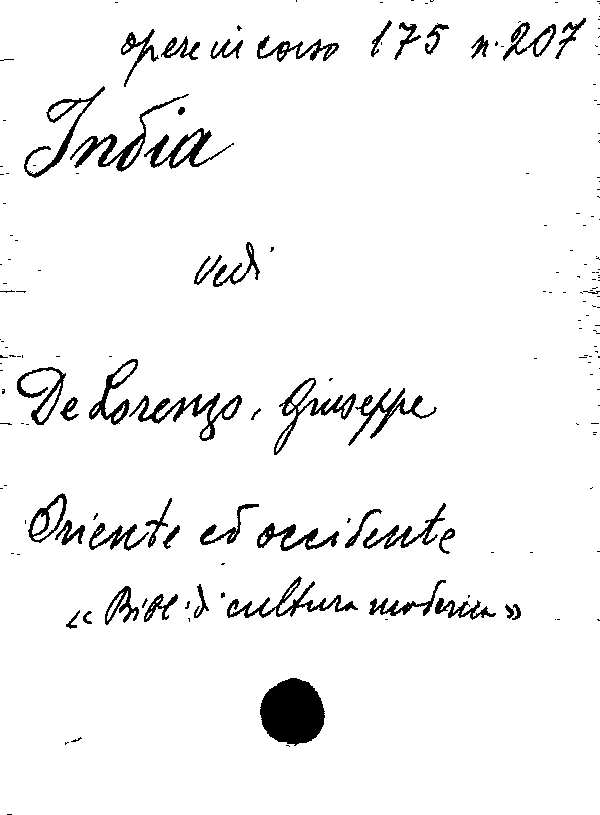 opere in corso 175 n. 207
India
vedi
De Lorenzo, Giuseppe
Oriente ed occidente
« Bibl. di cultura moderna »